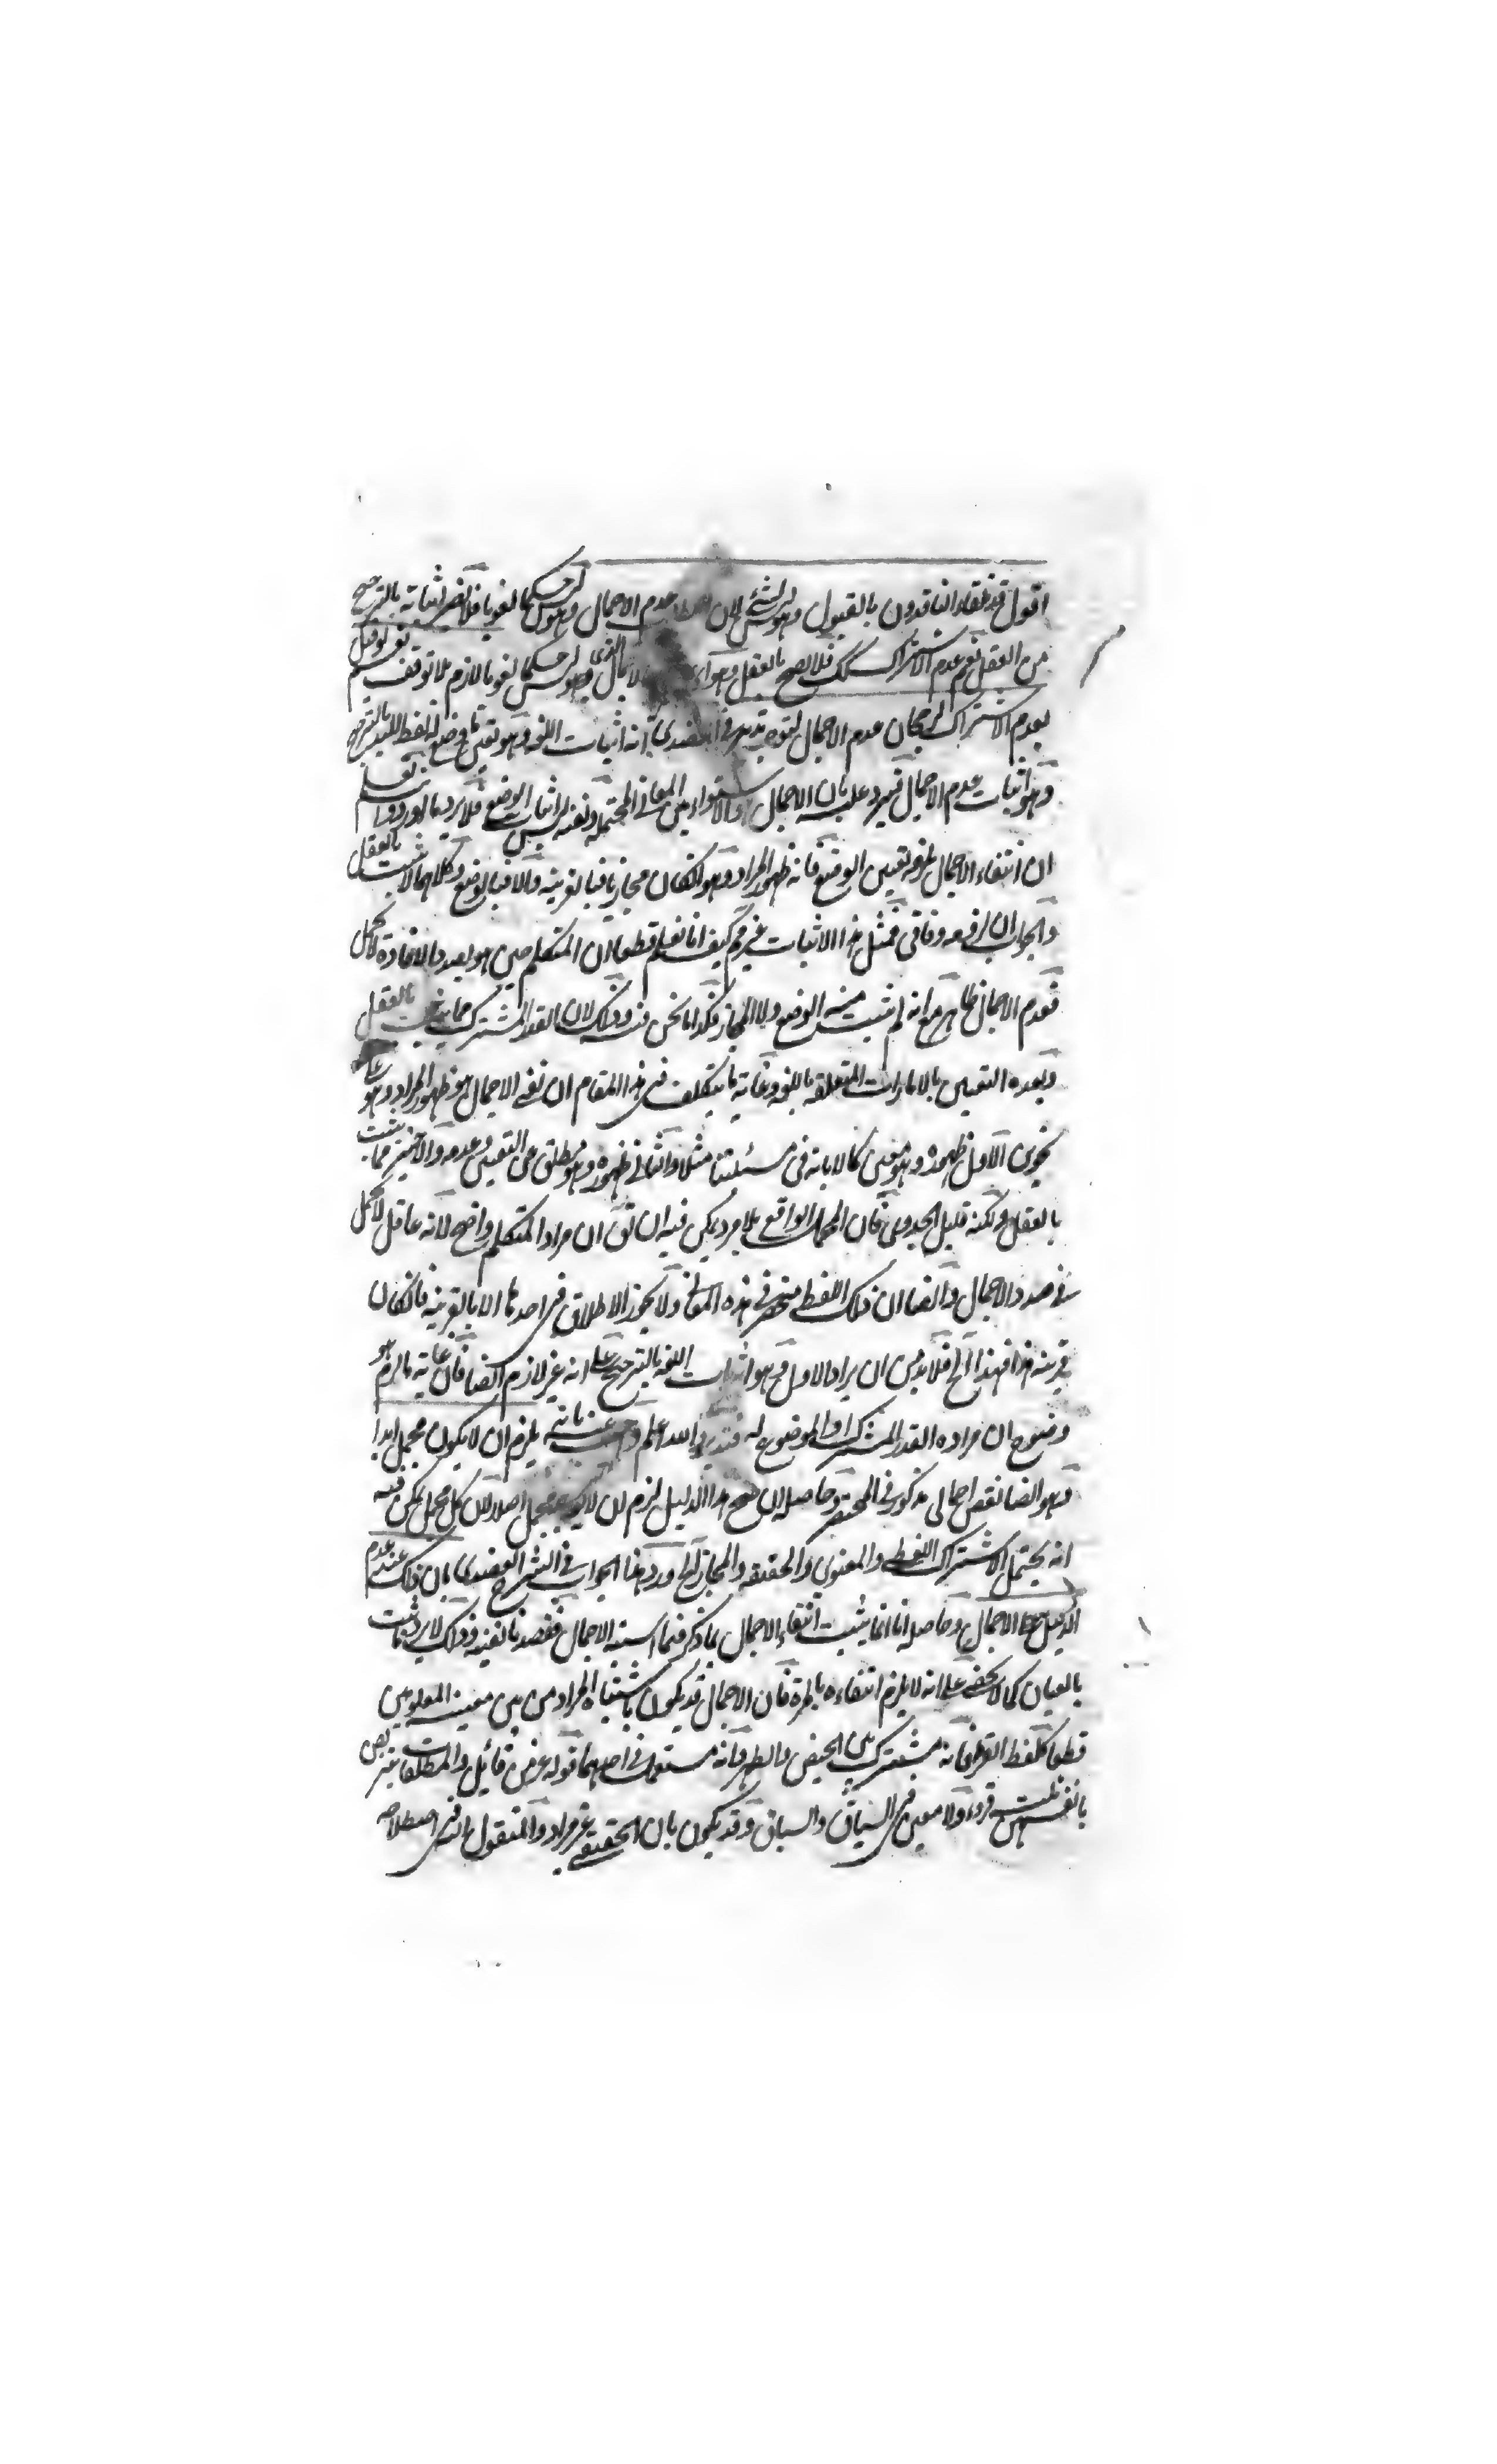 اقول قد تلقاه الناقدون بالقبول وهو ليس بشئ لان عدم الاجمال وهو ليس حكما لغويا فلا يضر اثباته بالترجيح
من العقل نعم عدم الاشتراك كك فلا يصح بالعقل وهو الذى وهو ليس حكما لغويا لازم بلا توقف نعم لو قيل
بعدم الاشتراك لرجحان عدم الاجمال لتوجه انه اثبات اللغة وهو تعيين ما وضع له لفظ اليد بالترجيح
وهو اثبات عدم الاجمال فيرد عليه بان الاجمال هو الاستواء بين المعانى المحتملة ونفيه ليس اثبات الوضع فلا يرد
ان انتفاء الاجمال يلزمه تعيين الوضع فانه ظهور المراد وهو انكان مجازيا فبالقرينة والا فبالوضع وكلاهما لا يثبت بالعقل
والجواب ان فمثل هذا الاثبات غير كيف انا نعلم قطعا ان المتكلم حين هو بصدد الافادة لا يجمل
فعدم الاجمال ظاهر مع انه لم يثبت منه الوضع ولا المجاز فكذا ما نحن فيه وذلك لان القدر المشترك مما بالعقل
وبعده التعيين بالامارات المتعلقة باللغة وغاية ما يتكلف فى هذا المقام ان نفى الاجمال هو ظهور المراد وهو على
نحوين الاول ظهوره وهو معين كالابانة فى مسئلتنا مثلا والثانى ظهوره وهو مطلق عن التعيين وعدمه والاخير مما يثبت
بالعقل ولكنه قليل الجدوى فان المجمل الواقع بلا مرد يمكن فيه ان يق ان مراد المتكلم واضح لانه عاقل لا يجمل
فى صدد الاجمال وايضا ان ذلك اللفظ منحصر فى هذه المعانى ولا يجوز الاطلاق فى احدها الا بالقرينة فانكان
قرينة هذا فهذا الخ فلا بد من ان يراد الاول وهو اثبات اللغة بالترجيح على انه غير لازم ايضا فان غاية ما لزم هو
وضوح ان مراده القدر المشترك او الموضوع له فتدبر والله اعلم وعنه ثانيا يلزم ان لا يكون مجمل ابدا
وهو ايضا نقض اجمالى مذكور فى المختصر وحاصله ان صح هذا الدليل لزم ان لا يكون مجمل اصلا لان كل مجمل يمكن فيه
انه يحتمل الاشتراك اللفظى والمعنوى والحقيقة والمجاز الخ ورد هذا الجواب فى الشرح العضدى بان ذلك عند عدم
الدليل على الاجمال وحاصله انا انما يثبت انتفاء الاجمال بما ذكر فيما الاجمال فقصدنا نفيه وذلك لا يرد ما يثبت
بالعيان كما لا يخفى على انه لا يلزم انتفاءه بالمرة فان الاجمال قد يكون باشتباه المراد من بين معينية المعلومين
قطعا كلفظ القرء فانه مشترك بين الحيض والطهر وانه مستعمل فى احدهما قوله عز من قائل والمطلقات يتربصن
بانفسهن ثلثة قروء ولا معين فى السياق والسباق وقد يكون بان الحقيقى غير مراد والمنقول اليه فى اصطلاحه